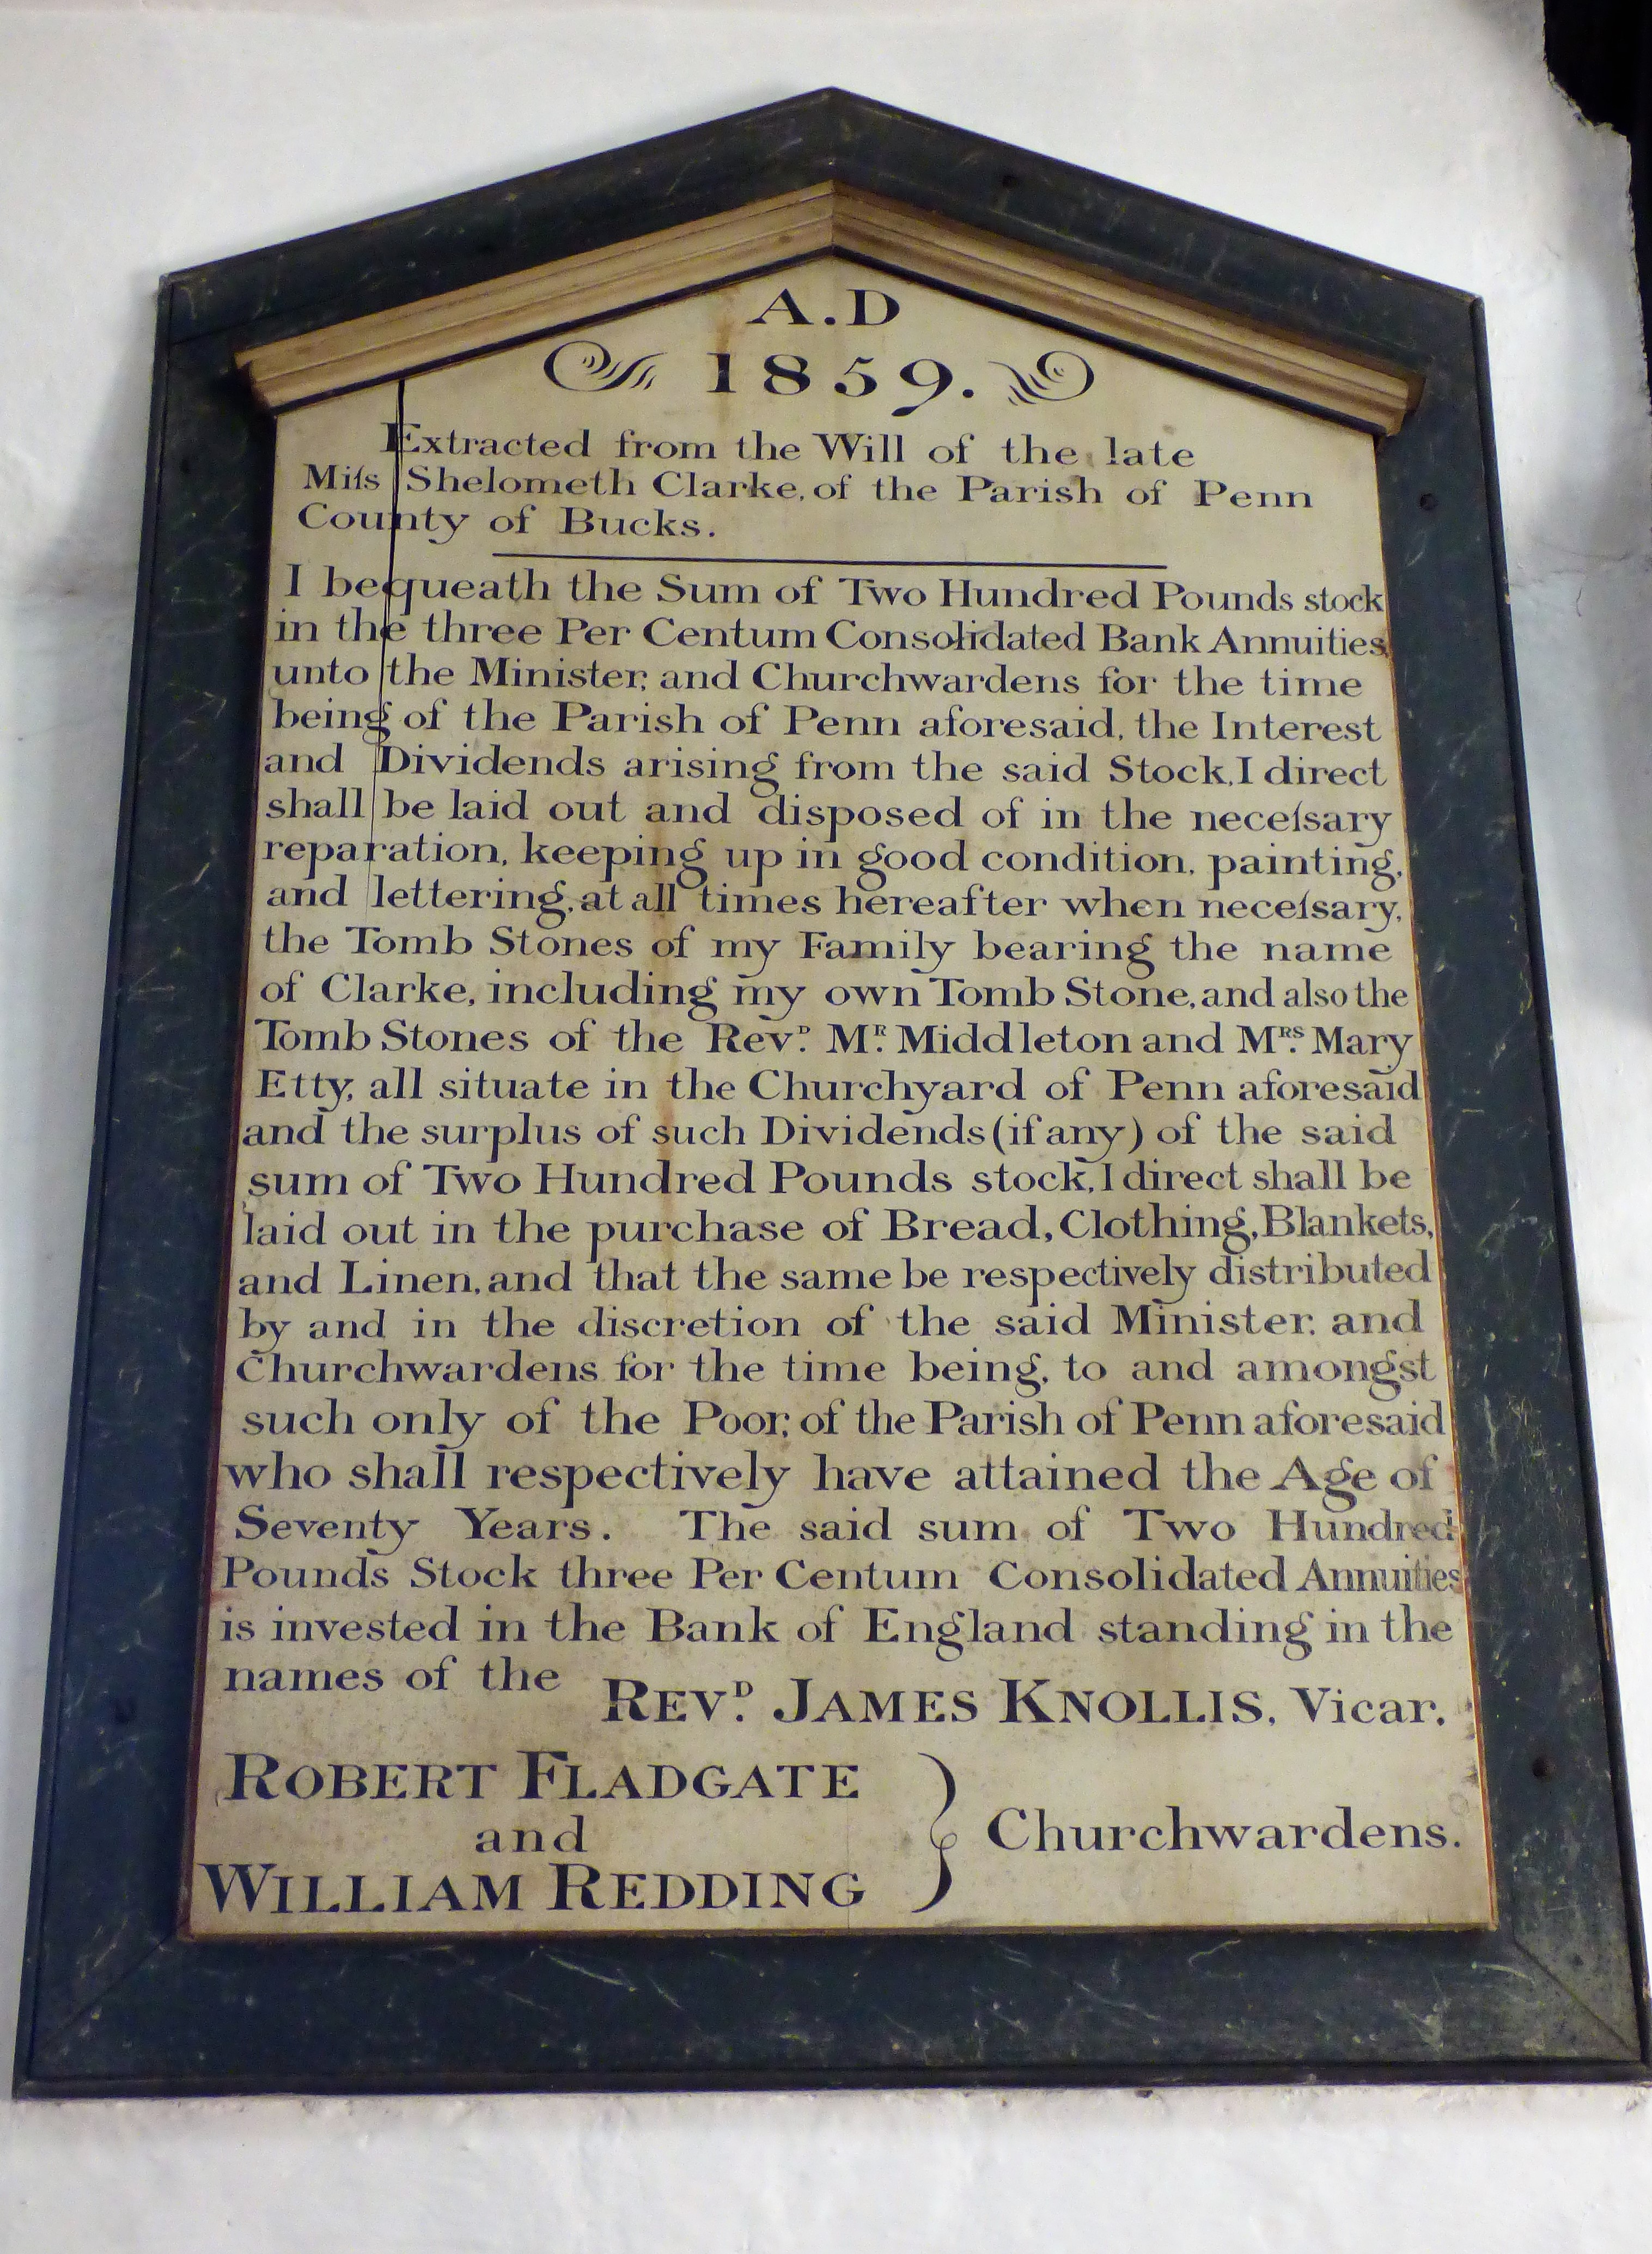 A.D
1859.
Extracted from the Will of the late
Miſs Shelometh Clarke, of the Parish of Penn
County of Bucks.
I bequeath the Sum of Two Hundred Pounds stock
in the three Per Centum Consolidated Bank Annuities
unto the Minister, and Churchwardens for the time
being of the Parish of Penn aforesaid, the Interest
and Dividends arising from the said Stock, I direct
shall be laid out and disposed of in the neceſsary
reparation, keeping up in good condition, painting,
and lettering, at all times hereafter when neceſsary,
the Tomb Stones of my Family bearing the name
of Clarke, including my own Tomb Stone, and also the
Tomb Stones of the Revᴰ. Mᴿ. Middleton and Mᴿˢ. Mary
Etty, all situate in the Churchyard of Penn aforesaid
and the surplus of such Dividends (if any) of the said
sum of Two Hundred Pounds stock, I direct shall be
laid out in the purchase of Bread, Clothing, Blankets,
and Linen, and that the same be respectively distributed
by and in the discretion of the said Minister, and
Churchwardens for the time being, to and amongst
such only of the Poor, of the Parish of Penn aforesaid
who shall respectively have attained the Age of
Seventy Years. The said sum of Two Hundred
Pounds Stock three Per Centum Consolidated Annuities
is invested in the Bank of England standing in the
names of the REVᴰ. JAMES KNOLLIS, Vicar.
ROBERT FLADGATE
and
WILLIAM REDDING
} Churchwardens.